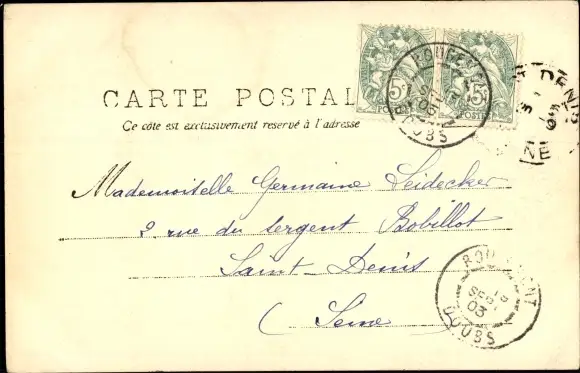 CARTE POSTAL
Ce côte est exclusivement reservé à l'adresse
5c 5c
POSTES POSTES
ROUGEMONT
SEPT
03
DOUBS
DENIS
NE
Mademoiselle Germaine Leidecker
2 rue du sergent Bobillot
Saint-Denis
(Seine)
ROUGEMONT
SEPT
03
DOUBS